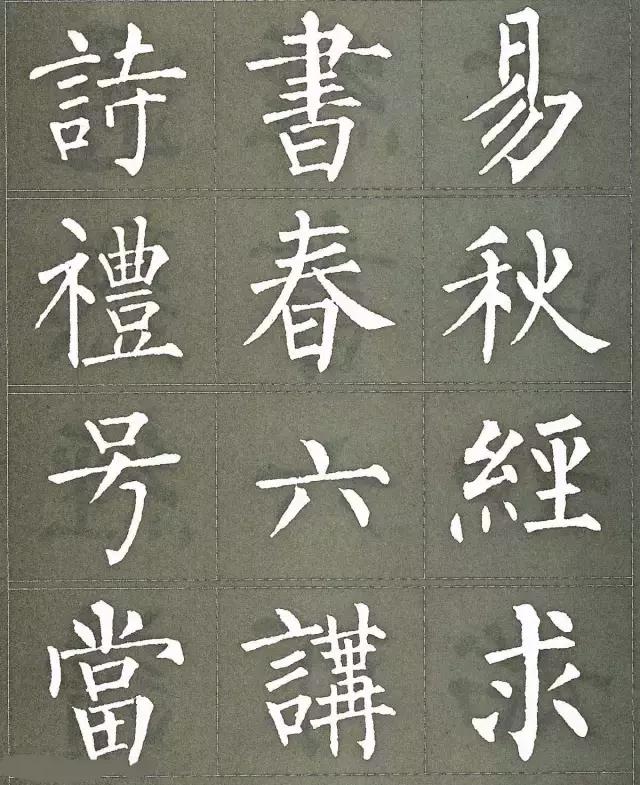 詩書易
禮春秋
号六經
當講求